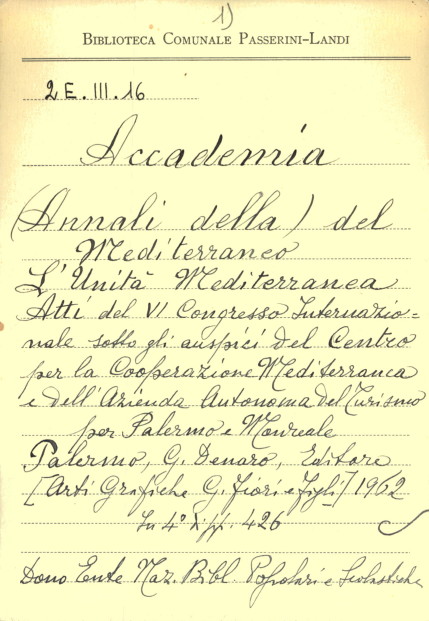 1)
BIBLIOTECA COMUNALE PASSERINI-LANDI
2 E. III. 16
Accademia
(Annali della) del
Mediterraneo
L'Unità Mediterranea
Atti del VI Congresso Internazio=
nale sotto gli auspici del Centro
per la Cooperazione Mediterranea
e dell'Azienda Autonoma Del Turismo
per Palermo e Monreale
Palermo, G. Denaro, Editore
[Arti Grafiche G. Fiori e Figli] 1962
In 4° pp. 426
Dono Ente Naz. Bibl. Popolari e Scolastiche